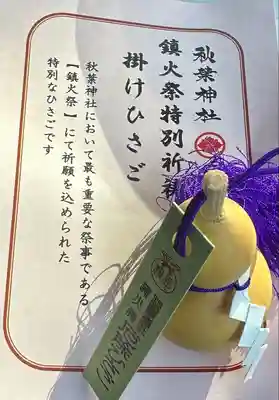 秋葉神社
鎮火祭特別祈祷
掛けひさご
秋葉神社において最も重要な祭事である
【鎮火祭】にて祈願を込められた
特別なひさごです